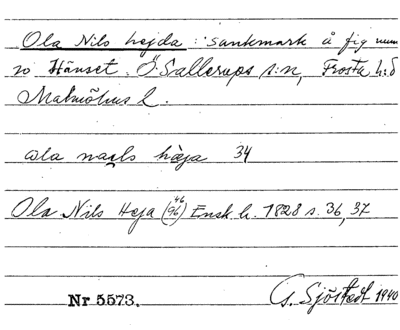 Ola Nils hejda : sankmark å fig num
20 Hänset. Ö. Sallerups s:n, Frosta h:d
Malmöhus l.
ola nagls hæja 34
Ola Nils Heja (46/96) Ensk. h. 1828 s. 36, 37
Nr 5573. G. Sjöstedt 1940